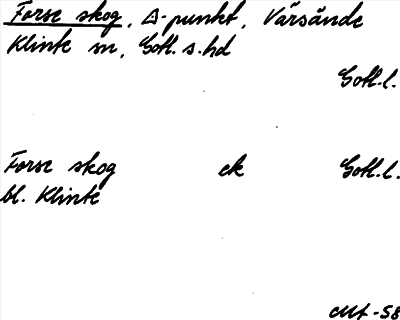 Forse skog, Δ-punkt, Värsände
Klinte sn, Gotl. s. hd
Gotl. l.
Forse skog ek Gotl. l.
bl. Klinte
Mf -58